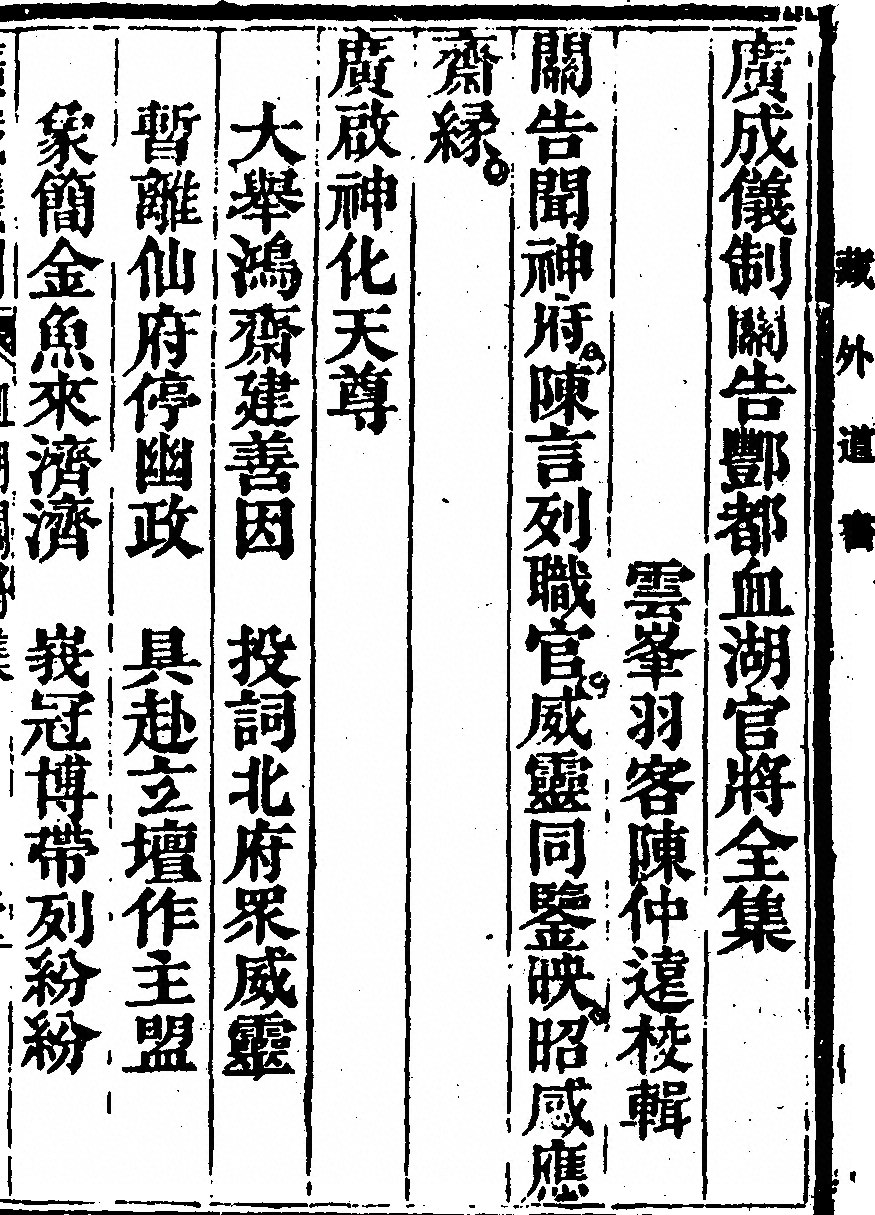 藏外道書
廣成儀制關告酆都血湖官將全集
雲峯羽客陳仲遠校輯
關告聞神府陳言列職官威靈同鑒映昭感應
齋縁
廣啟神化天尊
大舉鴻齋建善因　投詞北府眾威靈
暫離仙府停幽政　具赴立壇作主盟
象簡金魚來濟濟　峩冠博帶列紛紛